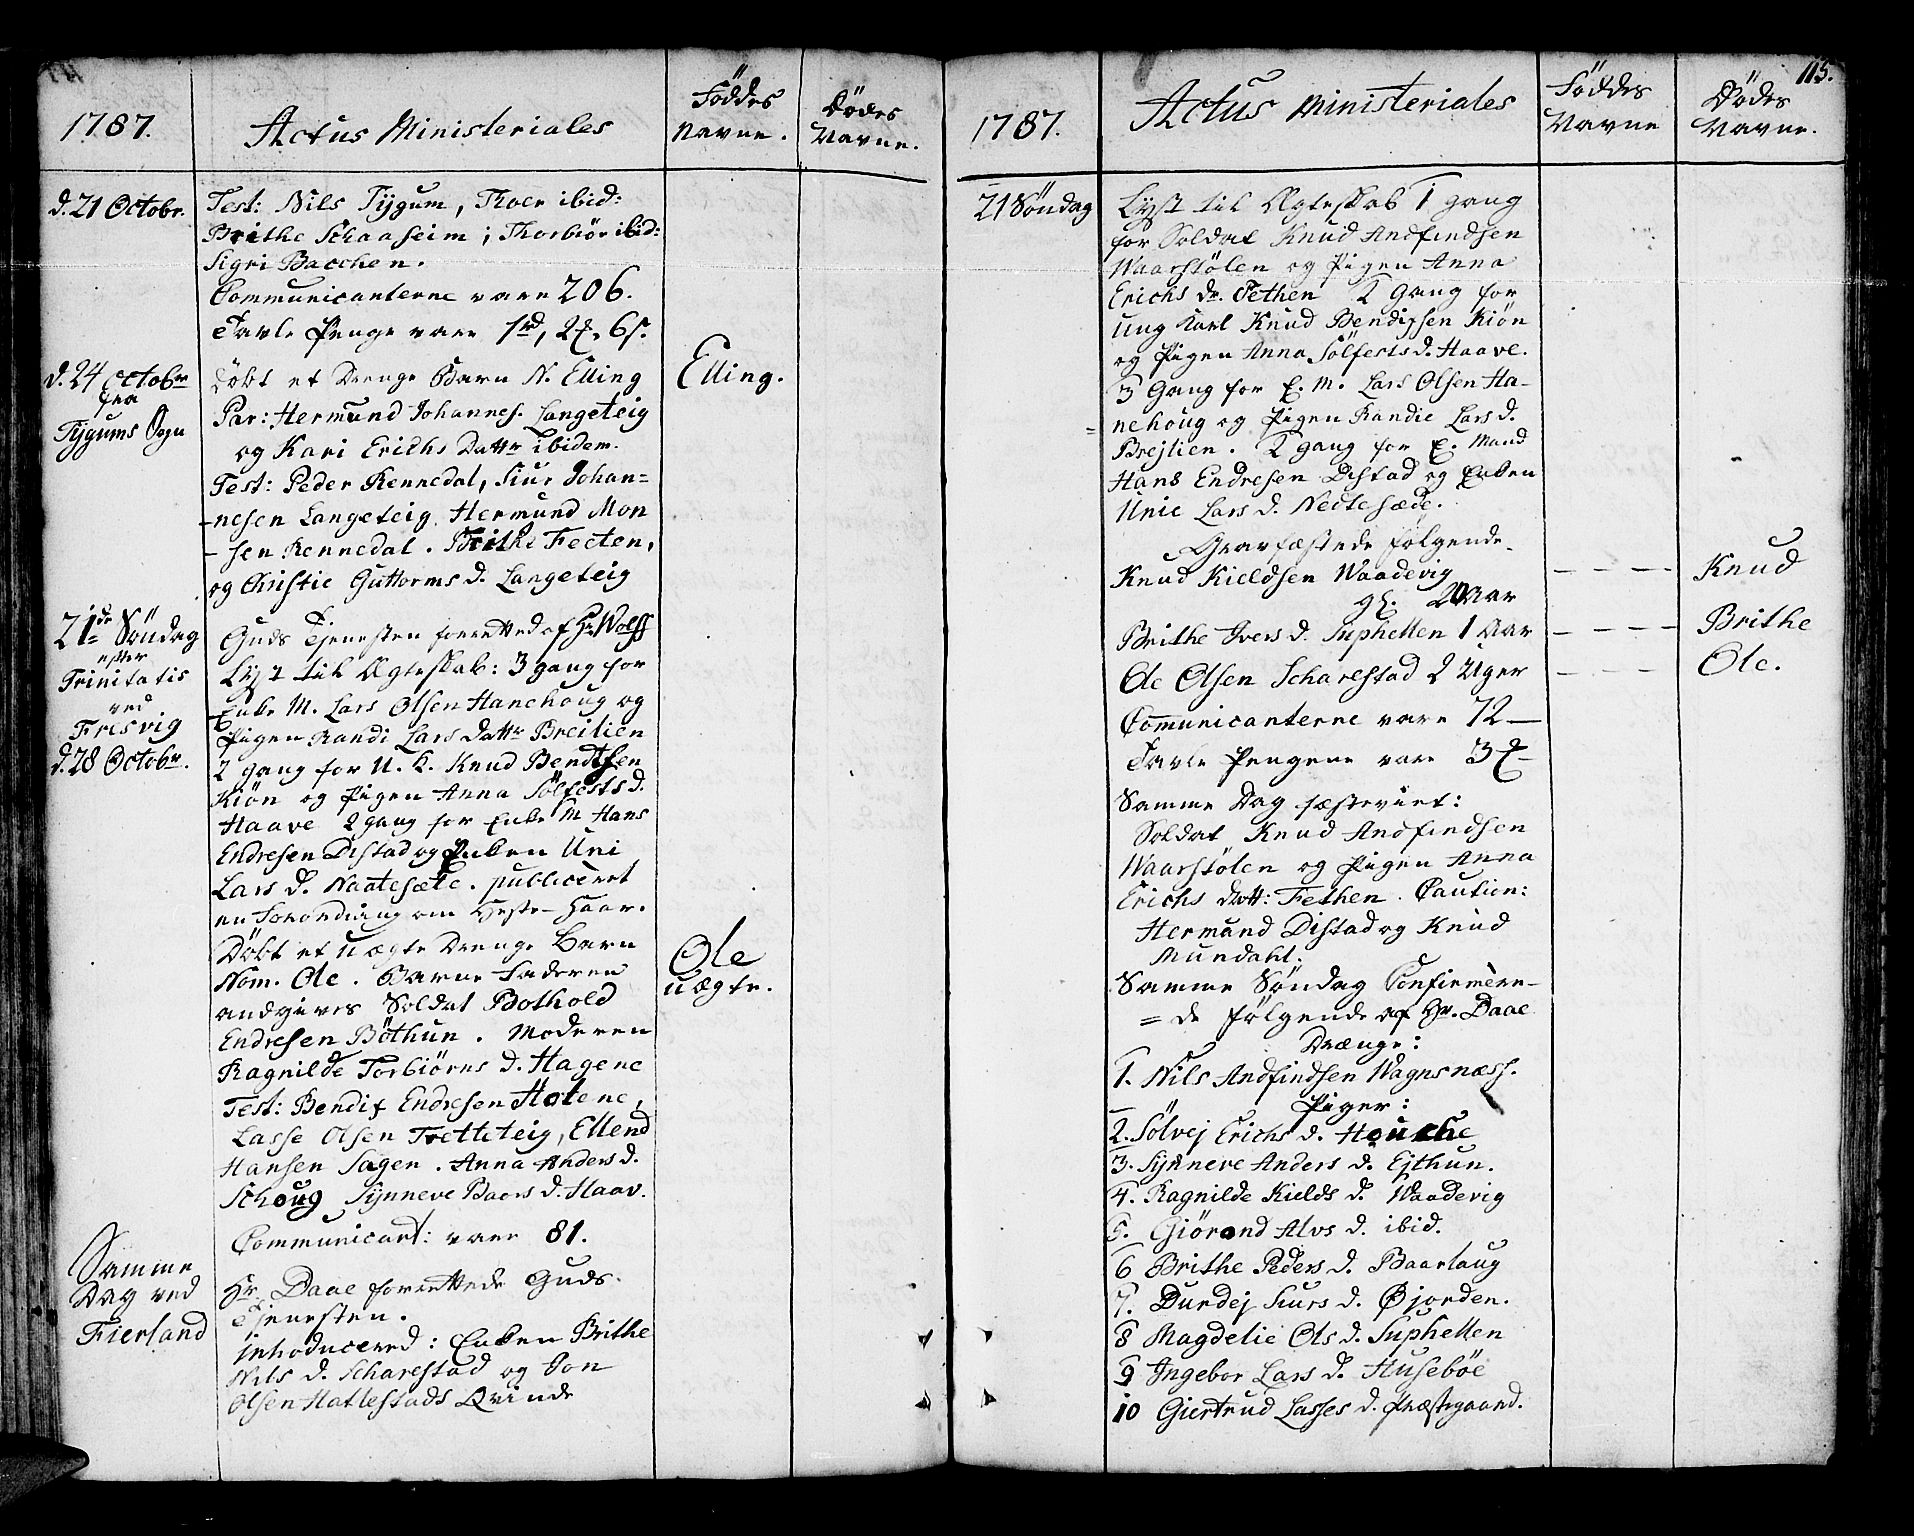 1787.
Actus Ministeriales
Föddes
Navne.
Dödes
Navne.
d. 21 Octobr.
Test: Nils Tygum, Thoer ibid:
Brithe Schaaseim; Thorbiör ibid:
Sigri Bacchen.
Communicanterne vare 206.
Tavle Penge vare 1 rd, 2 , 6 s.
d. 24 Octobr
fra
Tygums Sogn
Döbt et Drenge Barn N. Elling
Elling.
Par: Hermund Johannes. Langeteig
og Kari Erichs Dattr ibidem.
Test: Peder Rennedal, Siur Johan=
-nesen Langeteig, Hermund Mon
-sen Rennedal. Brithe Feeten,
og Christie Guttorms d. Langeteig
21de Söndag
efter
Trinitatis
ved
Fresvig
d. 28 Octobr.
Guds Tjenesten forretted af Hr Wolff
Lyst til Ægteskab: 3 gang for
Enke M. Lars Olsen Hanehoug og
Pigen Randi Lars Dattr Breilien
2 gang for U. K. Knud Bendtsen
Kiön og Pigen Anna Sölfests d.
Haave 2 gang for Enke M Hans
Endresen Distad og Enken Uni
Lars d. Naatesæte. publiceret
en Forordning om Heste-Haar.
Döbt et uægte Drenge Barn
Ole
uægte.
Nom. Ole. Barne Faderen
andgives Soldat Bothold
Endresen Böthun. Moderen
Ragnilde Torbiörns d. Hagene
Test: Bendix Endresen Hatene,
Lasse Olsen Tretteteig, Ellend
Hansen Sagen. Anna Anders d.
Schoug Synneve Baars d. Haav.
Communicant: vare 81.
Samme
Dag ved
Fierland
Hr. Daae forrettede Guds-
Tjenesten.
introducered: Enken Brithe
Nils d. Scharestad og Jon
Olsen Hatlestads Qvinde
115.
1787.
Actus Ministeriales
Föddes
Navne
Dödes
Navne.
21 Söndag
Lyst til Ægteskab 1 gang
for Soldat Knud Andfindsen
Waarstölen og Pigen Anna
Erichs dr. Fethen 2 Gang for
Ung Karl Knud Bendixsen Kiön
og Pigen Anna Sölfests d. Haave.
3 Gang for E. M. Lars Olsen Ha-
nehoug og Pigen Randie Lars d.
Brejlien. 2 gang for E. Mand
Hans Endresen Distad og Enken
Unie Lars d. Nedtesæde.
Gravfæstede følgende.
Knud Kieldsen Waadevig
gl. 20 Aar
Knud
Brithe Ivers d. Suphellen 1 Aar
Brithe
Ole Olsen Scharestad 2 Uger
Ole.
Comunicanterne vare 72
Tavle Pengene vare 3
Samme Dag fæsteviet:
Soldat Knud Andfindsen
Waarstölen og Pigen Anna
Erichs Datt: Fethen. Caution:
Hermand Distad og Knud
Mundahl.
Samme Söndag Confirmere-
= de følgende af Hr. Daae
Drænge:
1. Nils Andfindsen Wagnsness.
Piger:
2. Sölvej Erichs d. Houche
3. Synneve Anders d. Ejthun.
4. Ragnilde Kields d. Waadevig
5. Giörand Alvs d. ibid.
6 Brithe Peders d. Baarlaug
7. Durdej Siurs d. Øjorden.
8 Magdelie Ols d. Suphellen
9 Ingebor Lars d. Husebøe
10 Giertrud Lasses d. Præstegaard.